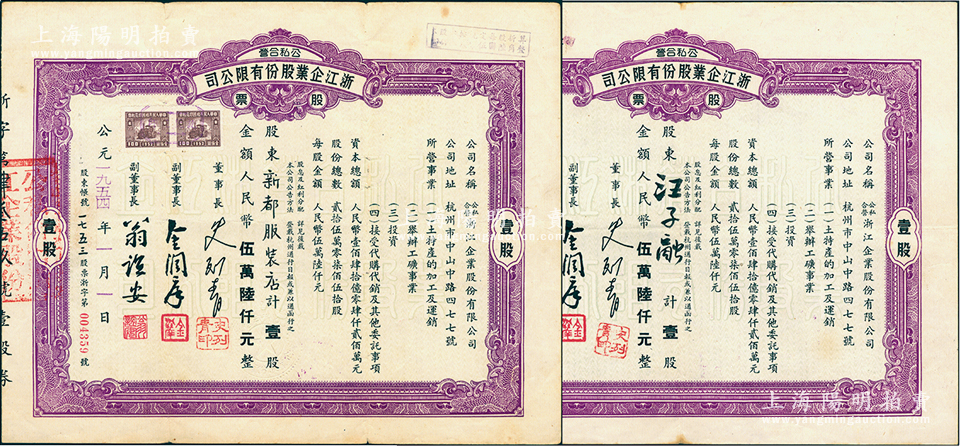 上海陽明拍賣
yangmingauction.com
公私合營
浙江企業股份有限公司
股票
壹股
公司名稱 公私合營 浙江企業股份有限公司
公司地址 杭州市中山中路四七七號
所營事業 (一)土特產的加工及運銷
(二)舉辦工礦事業
(三)投資
(四)接受代購代銷及其他委託事項
資本總額 人民幣壹佰肆拾億零肆仟貳佰萬元
股份總數 貳拾伍萬零柒佰伍拾股
每股金額 人民幣伍萬陸仟元
股息及紅利分配 詳見後載
本公司公告方法 登載杭州通行日報或兼以通函行之
股東 新都服裝店 計 壹 股
金額 人民幣 伍萬陸仟元 整
董事長
副董事長 金潤庠
副董事長
公元一九五四年一月一日
股東帳號 一七五三 股票浙字第 004359 號
壹股
公私合營
浙江企業股份有限公司
股票
公司名稱 公私合營 浙江企業股份有限公司
公司地址 杭州市中山中路四七七號
所營事業 (一)土特產的加工及運銷
(二)舉辦工礦事業
(三)投資
(四)接受代購代銷及其他委託事項
資本總額 人民幣壹佰肆拾億零肆仟貳佰萬元
股份總數 貳拾伍萬零柒佰伍拾股
每股金額 人民幣伍萬陸仟元
股息及紅利分配 詳見後載
本公司公告方法 登載杭州通行日報或兼以通函行之
股東 汪子融 計 壹 股
金額 人民幣 伍萬陸仟元 整
董事長
副董事長 金潤庠
壹股
上海陽明拍賣
yangmingauction.com